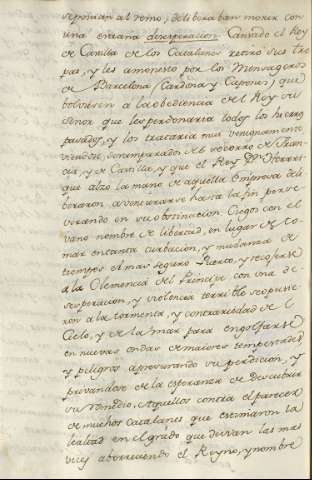 reputasen al reino; deliberaban morir con
una extraña desesperacion. Cansado el Rey
de Castilla de los Catalanes retiró sus tro
pas, y les amonestó por los Mensageros
de Barcelona (Cardona y Caponis) que
bolviesen a la obediencia del Rey su
Señor que les perdonaria todos los hierros
pasados, y los trataria mui venignamente
viendose desamparados de socorro de Fran
cia, y de Castilla, y que el Rey Dn. Henrri
que alzó la mano de aquella Empresa deli
beraron aventurarse hasta la fin perse
verando en su obstinacion Ciegos con el
vano nombre de libertad, en lugar de to
mar en tanta turbacion, y mudanza de
tiempos el mas seguro Puerto, y recojerse
a la Clemencia del Principe con una de
sesperacion, y violencia terrible se opusie
ron a la tormenta, y contrariedad de l
Cielo, y de la mar para engolfarse
en nuevas ondas de maiores tempestades
y peligros apresurando su perdicion, y
privandose de la esperanza de descubrir
su remedio. Aquellos contra el parecer
de muchos Catalanes que estimaron la
lealtad en el grado que devian las mas
veces aborreciendo el Reyno, y nombre